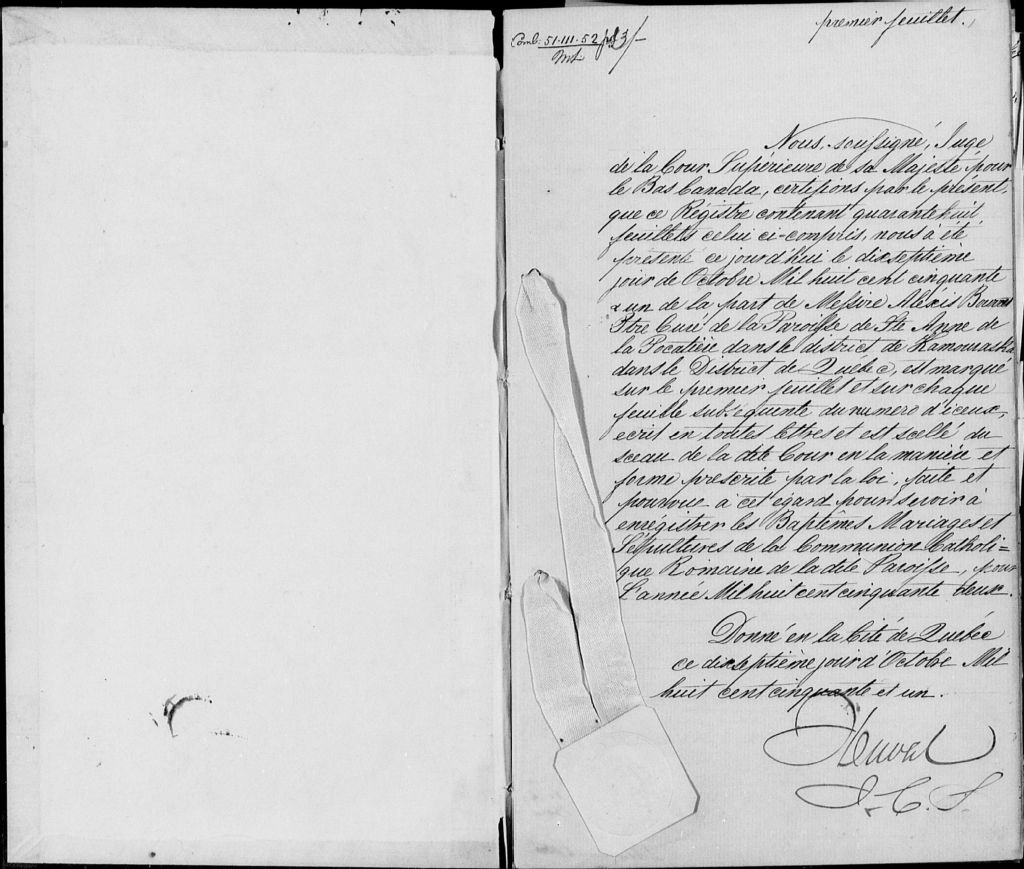 premier feuillet.
Comb: 51-III-52
Nous, soussigné, Juge
de la Cour Supérieure de sa Majesté pour
le Bas Canada, certifions par le présent,
que ce Régistre contenant quarante huit
feuillets celui ci-compris, nous à été
présenté ce jourd'hui le dixseptième
jour de Octobre Mil huit cent cinquante
& un de la part de Messire Aléxis
Ptre Curé de la Paroisse de Ste Anne de
la Pocatière dans le district de Kamouraska
dans le District de Québec, est marqué
sur le premier feuillet et sur chaque
feuille subséquente du numero d'iceux,
ecrit en toutes lettres et est scellé du
sceau de la dite Cour en la manière et
forme prescrite par la loi, faite et
pourvue à cet égard pour servir à
enrégistrer les Baptêmes Mariages et
Sépultures de la Communion Catholi=
que Romaine de la dite Paroisse, pour
L'année Mil huit cent cinquante deux.
Donné en la Cité de Québec
ce dixseptième jour d'Octobre Mil
huit cent cinquante et un.
Duval
J. C. S.